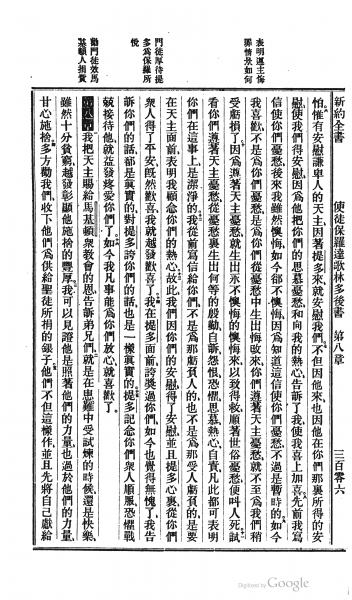 新約全書　使徒保羅達歌林多後書　第八章　三百零六
表明遵主悔罪情景如何
門徒厚待提多爲保羅所悅
勸門徒效馬基頓人捐貲
怕惟有安慰謙卑人的天主因著提多來就安慰我們不但因他來也因他在你們那裏所得的安
慰使我們得安慰因爲他把你們的思慕憂愁和向我的熱心告訴了我使我喜上加喜先前我寫
信使你們憂愁後來我雖然懊悔如今卻不懊悔因爲知道這信使你們憂愁不過是暫時的如今
我喜歡不是爲你們憂愁是爲你們從憂愁中生出悔改來你們遵著天主憂愁就不至爲我們稍
受虧損了因爲遵著天主憂愁就生出永不懊悔的懊悔來以致得救順著世俗憂愁便叫人死試
看你們遵著天主憂愁從憂愁裏生出何等的殷勤自訴怨恨恐懼思慕熱心自責凡此都可表明
你們在這事上是潔淨的我從前寫信給你們不是爲那虧負人的也不是爲那受人虧負的是要
在天主面前表明我顧念你們的熱心故此我們因你們的安慰得了安慰並且提多心裏從你們
衆人得了平安旣然歡喜我就越發歡喜了我在提多面前誇獎過你們如今也覺得無愧了我告
訴你們的話都是眞實的對提多誇你們的話也是一樣眞實的提多記念你們衆人順服恐懼戰
兢接待他就益發疼愛你們了如今我凡事能爲你們放心就喜歡了
第八章我把天主賜給馬基頓衆教會的恩告訴弟兄們就是在患難中受試煉的時候還是快樂
雖然十分貧窮越發彰顯他施捨的豐厚我可以見證他是照著他們的力量也過於他們的力量
甘心施捨多方勸我們收下他們爲供給聖徒所捐的銀子他們不但這樣作並且先將自己獻給
Digitized by Google